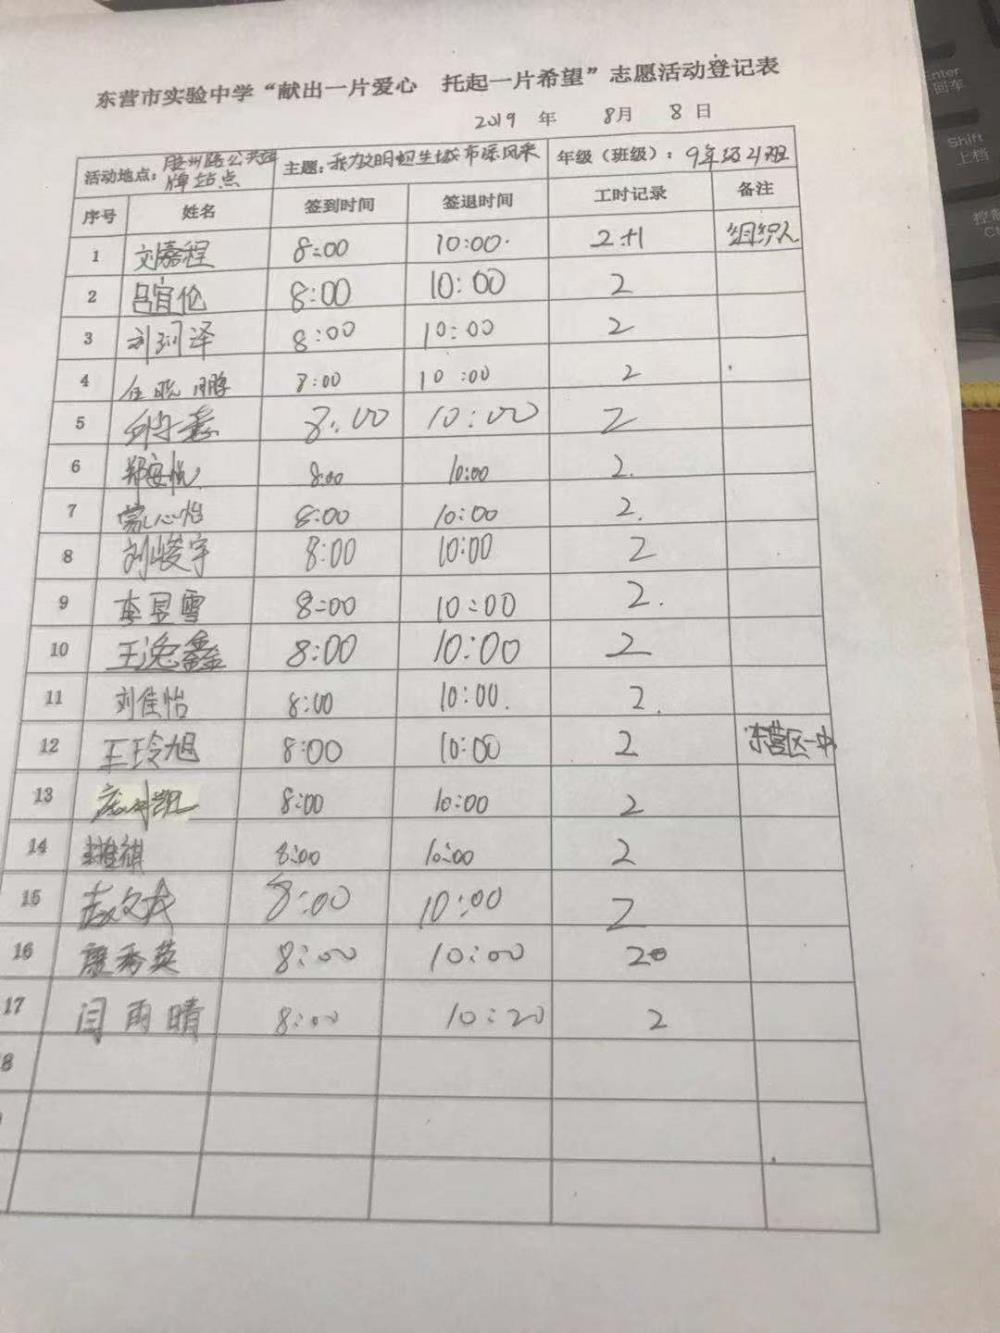 东营市实验中学“献出一片爱心 托起一片希望”志愿活动登记表
2019 年 8月 8日
活动地点：胶州路公共 牌站点 主题：我为文明卫生城市添风采 年级（班级）：9年级21班
序号 姓名 签到时间 签退时间 工时记录 备注
1 刘嘉程 8:00 10:00. 2+1 组织人
2 吕宜伦 8:00 10:00 2
3 刘珂泽 8:00 10:00 2
4 任晓鹏 8:00 10:00 2
5 8:00 10:00 2
6 郑安悦 8:00 10:00 2.
7 心怡 8:00 10:00 2.
8 刘峻宇 8:00 10:00 2
9 李昱雪 8:00 10:00 2.
10 王逸鑫 8:00 10:00 2
11 刘佳怡 8:00 10:00. 2.
12 王玲旭 8:00 10:00 2 东营区一中
13 8:00 10:00 2
14 8:00 10:00 2
15 8:00 10:00 2
16 秀英 8:00 10:00 2
17 闫雨晴 8:00 10:20 2
8
Enter
回车
Shift
上档